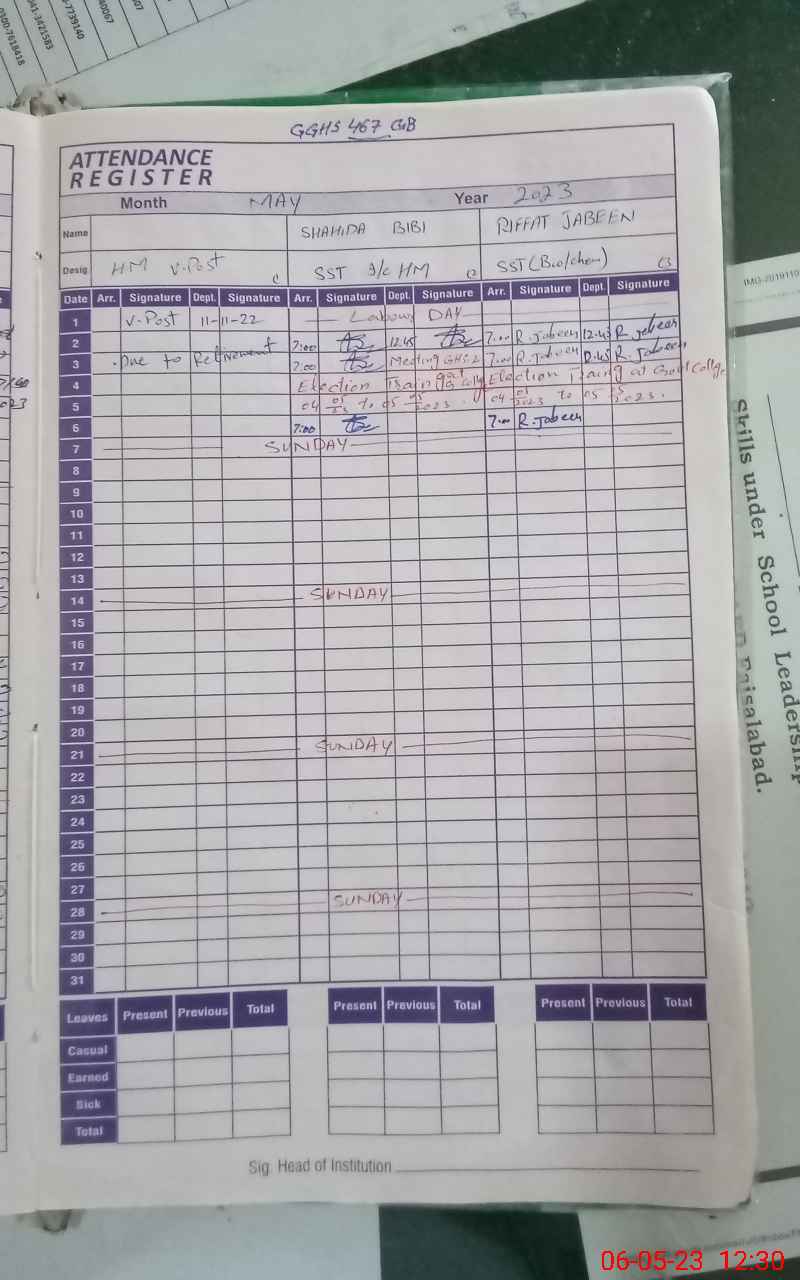 0300-7618418
041-3421583
GGHS 467 GB
ATTENDANCE
REGISTER
Month MAY Year 2023
Name SHAHIDA BIBI RIFFAT JABEEN
Desig HM V.Post SST I/C HM SST (Bio/chem)
Date Arr. Signature Dept. Signature Arr. Signature Dept. Signature Arr. Signature Dept. Signature
1 V-Post 11-11-22 Labour DAY
2 7:00 12:45 7:00 R.Jabeen 12:45 R.Jabeen
3 Due to Retirement 7:00 Meeting GHS 2 7:00 R.Jabeen 12:45 R.Jabeen
4 Election Election at Govt College
5 04 to 05 05 2023 04 05 2023 to 05 05 2023.
6 7:00 7:00 R.Jabeen
7 SUNDAY
8
9
10
11
12
13
14 SUNDAY
15
16
17
18
19
20
21 SUNDAY
22
23
24
25
26
27
28 SUNDAY
29
30
31
Leaves Present Previous Total Present Previous Total Present Previous Total
Casual
Earned
Sick
Total
Sig. Head of Institution
Skills under School Leadership
Faisalabad.
06-05-23 12:30